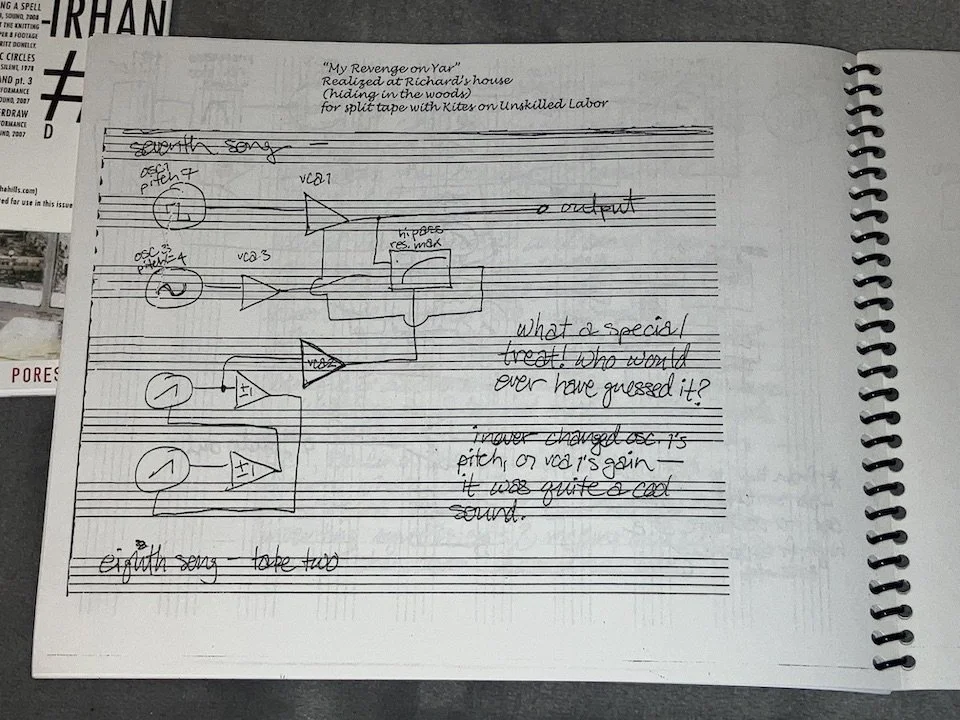 NG A SPELL
, SOUND, 2008
T THE KNITTING
PER 8 FOOTAGE
RITZ DONELLY.
C CIRCLES
SILENT, 1978
AND pt. 3
FORMANCE
OUND, 2007
ERDRAW
FORMANCE
ND, 2007
-IRHAN
#
D
hehills.com)
red for use in this issue
PORES
"My Revenge on Yar"
Realized at Richard's house
(hiding in the woods)
for split tape with Kites on Unskilled Labor
seventh song —
osc 1
pitch 7
vca 1
output
hipass
res. max
osc 3
pitch 4
vca 3
vca 2
±1
±1
what a special
treat! who would
ever have guessed it?
i never changed osc. 1's
pitch, or vca 1's gain —
it was quite a cool
sound.
eighth song — take two